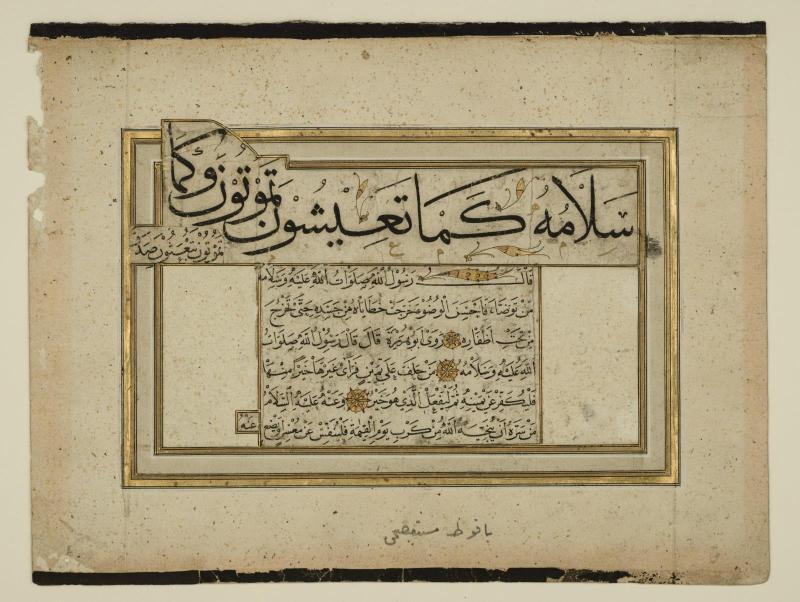 سَلَامُهُ كَمَا تَعِيشُونَ تَمُوتُونَ وَكَمَا
تَمُوتُونَ تُبْعَثُونَ صَدَقَ
قَالَ رَسُولُ اللهِ صَلَوَاتُ اللهُ عَلَيْهِ وَسَلَامُهُ
مَنْ تَوَضَّأَ فَأَحْسَنَ الْوُضُوءَ خَرَجَتْ خَطَايَاهُ مِنْ جَسَدِهِ حَتَّى تَخْرُجَ
مِنْ تَحْتِ أَظْفَارِهِ رَوَى أَبُو هُرَيْرَةَ قَالَ قَالَ رَسُولُ اللهِ صَلَوَاتُ
اللهِ عَلَيْهِ وَسَلَامُهُ مَنْ حَلَفَ عَلَى يَمِينٍ فَرَأَى غَيْرَهَا خَيْرًا مِنْهَا
فَلْيُكَفِّرْ عَنْ يَمِينِهِ ثُمَّ لْيَفْعَلِ الَّذِي هُوَ خَيْرٌ وَعَنْهُ عَلَيْهِ السَّلَامُ
مَنْ سَرَّهُ أَنْ يُنْجِيَهُ اللهُ مِنْ كَرْبِ يَوْمِ الْقِيَامَةِ فَلْيُنَفِّسْ عَنْ مُعْسِرٍ أَوْ يَضَعْ
عَنْهُ
ياقوت مستعصمى